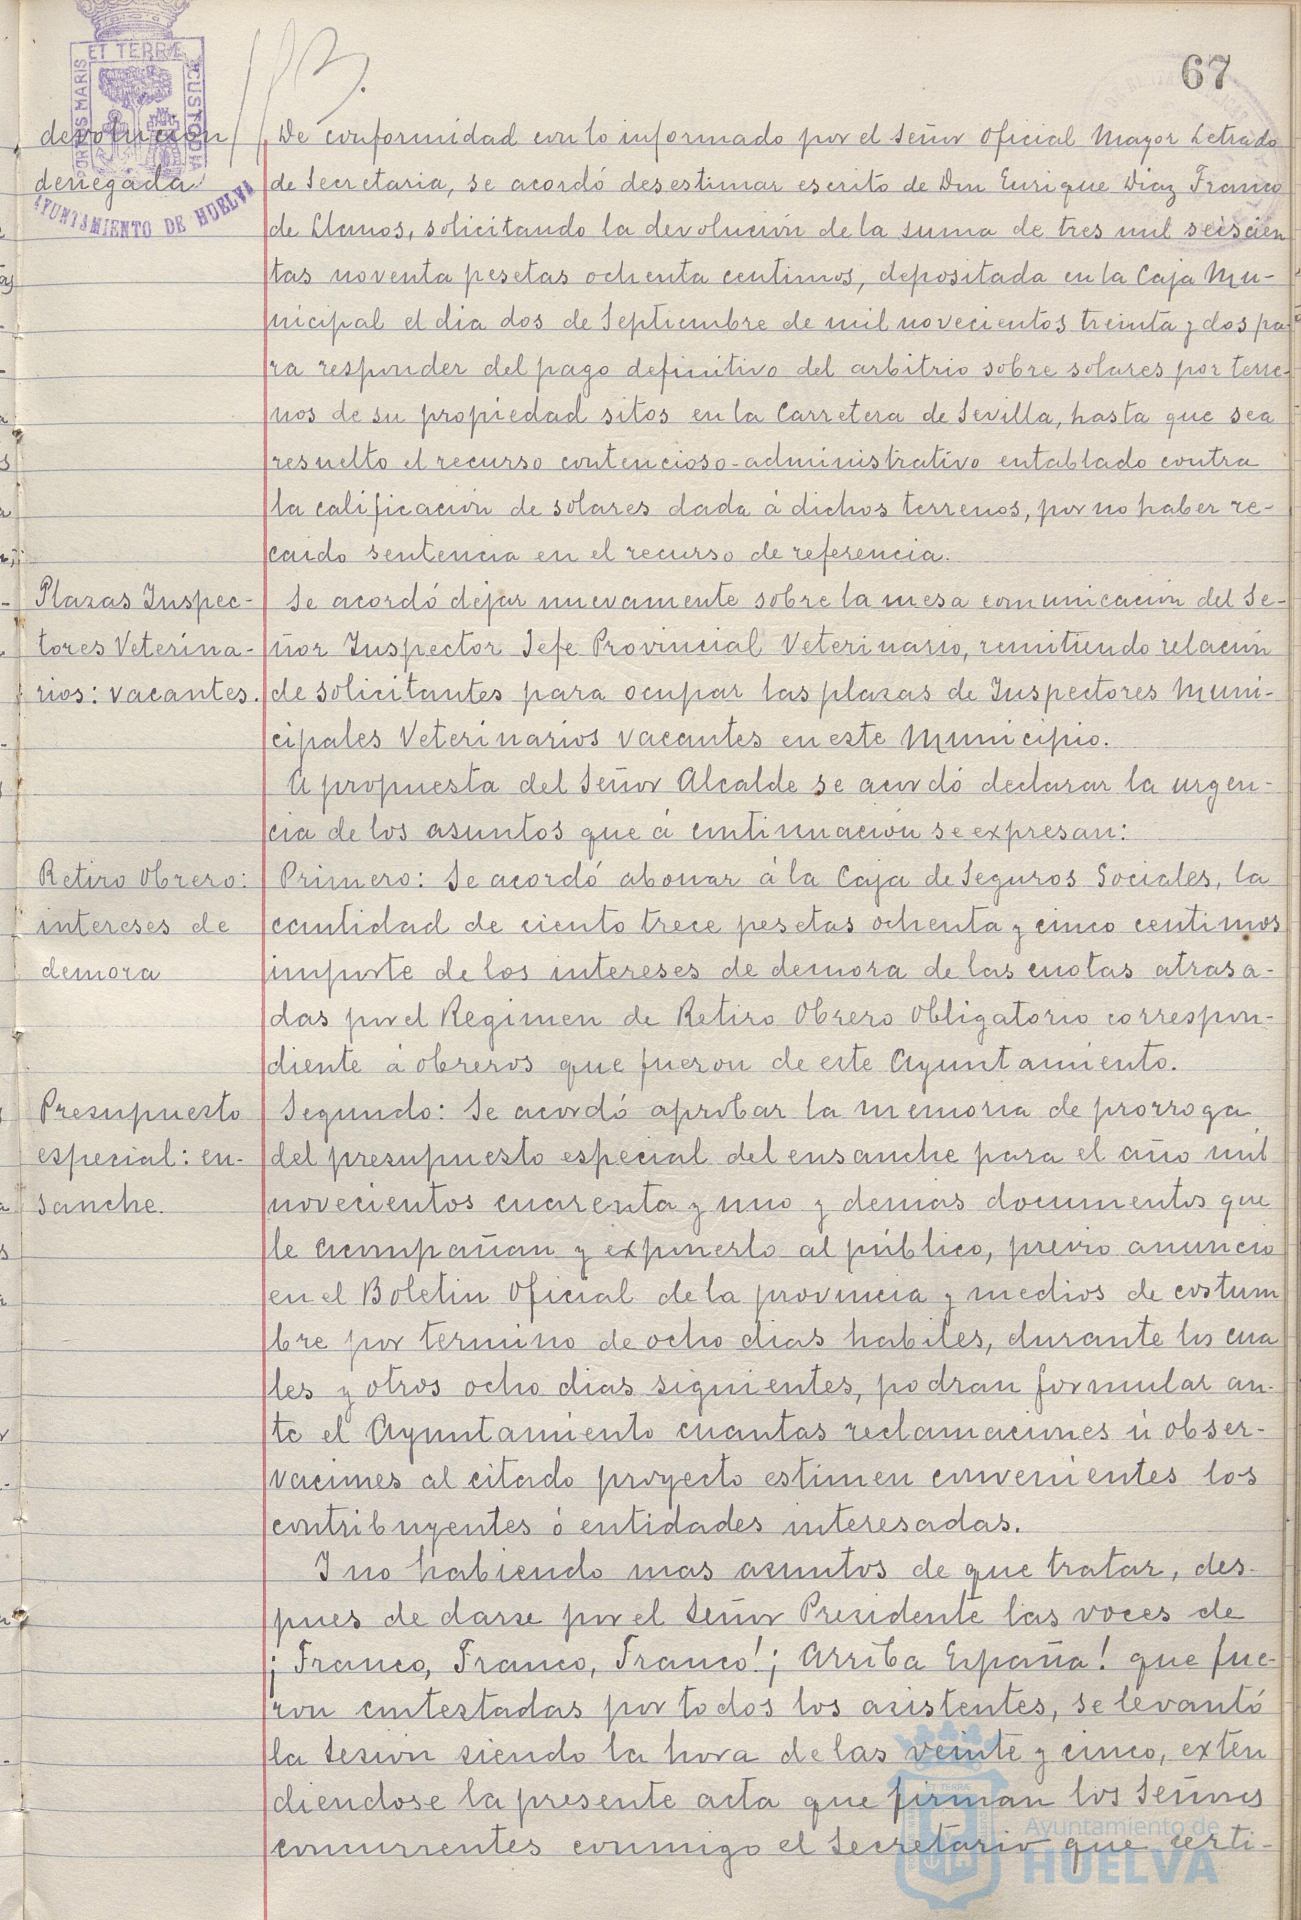 67
PORTUS MARIS ET TERRÆ CUSTODIA
AYUNTAMIENTO DE HUELVA
devolucion
denegada
De conformidad con lo informado por el Señor Oficial Mayor Letrado
de Secretaria, se acordó desestimar escrito de Don Enrique Diaz Franco
de Llanos, solicitando la devolución de la suma de tres mil seiscien
tas noventa pesetas ochenta centimos, depositada en la Caja Mu-
nicipal el dia dos de Septiembre de mil novecientos treinta y dos pa-
ra responder del pago definitivo del arbitrio sobre solares por terre-
nos de su propiedad sitos en la Carretera de Sevilla, hasta que sea
resuelto el recurso contencioso-administrativo entablado contra
la calificación de solares dada á dichos terrenos, por no haber re-
caido sentencia en el recurso de referencia.
Plazas Inspec-
tores Veterina-
rios: vacantes.
Se acordó dejar nuevamente sobre la mesa comunicación del Se-
ñor Inspector Jefe Provincial Veterinario, remitiendo relación
de solicitantes para ocupar las plazas de Inspectores Muni-
cipales Veterinarios vacantes en este Municipio.
A propuesta del Señor Alcalde se acordó declarar la urgen-
cia de los asuntos que á continuación se expresan:
Retiro Obrero:
intereses de
demora
Primero: Se acordó abonar á la Caja de Seguros Sociales, la
cantidad de ciento trece pesetas ochenta y cinco centimos
importe de los intereses de demora de las cuotas atrasa-
das por el Regimen de Retiro Obrero Obligatorio correspon-
diente á obreros que fueron de este Ayuntamiento.
Presupuesto
especial: en-
sanche.
Segundo: Se acordó aprobar la memoria de prorroga
del presupuesto especial del ensanche para el año mil
novecientos cuarenta y uno y demas documentos que
le acompañan y exponerlo al público, previo anuncio
en el Boletin Oficial de la provincia y medios de costum
bre por termino de ocho dias habiles, durante los cua
les y otros ocho dias siguientes, podran formular an-
te el Ayuntamiento cuantas reclamaciones ú obser-
vaciones al citado proyecto estimen convenientes los
contribuyentes ó entidades interesadas.
I no habiendo mas asuntos de que tratar, des-
pues de darse por el Señor Presidente las voces de
¡Franco, Franco, Franco! ¡Arriba España! que fue-
ron contestadas por todos los asistentes, se levantó
la sesion siendo la hora de las veinte y cinco, exten
diendose la presente acta que firman los Señores
concurrentes conmigo el Secretario que certi-
Ayuntamiento de
HUELVA